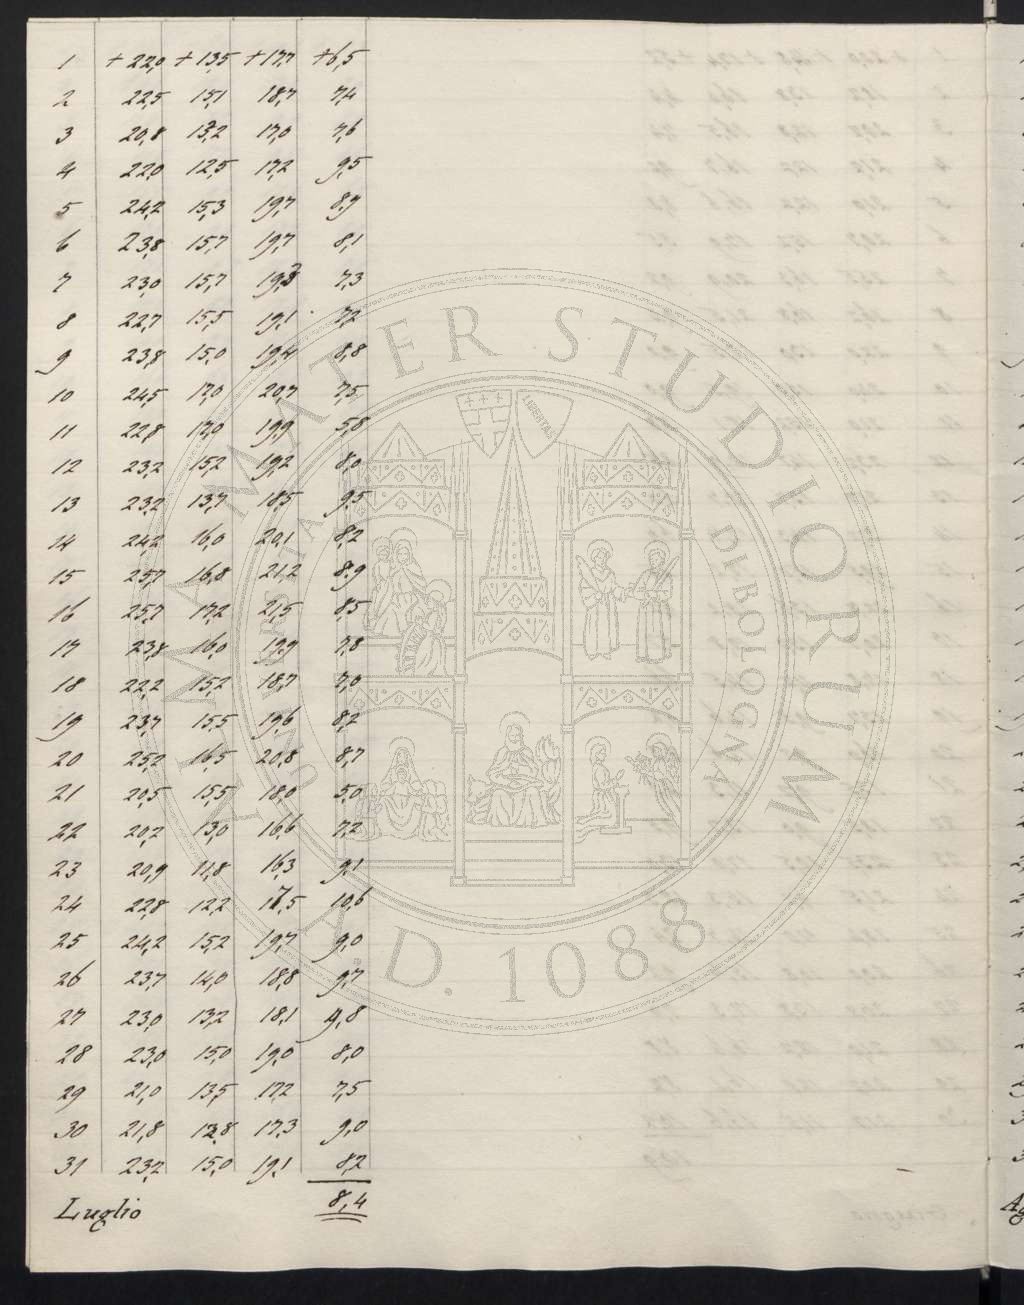 1 + 22,0 + 13,5 + 17,7 + 6,5
2 22,5 15,1 18,7 7,4
3 20,8 13,2 17,0 7,6
4 22,0 12,5 17,2 9,5
5 24,2 15,3 19,7 8,9
6 23,8 15,7 19,7 8,1
7 23,0 15,7 19,3 7,3
8 22,7 15,5 19,1 7,2
9 23,8 15,0 19,4 8,8
10 24,5 17,0 20,7 7,5
11 22,8 17,0 19,9 5,8
12 23,2 15,2 19,2 8,0
13 23,2 13,7 18,5 9,5
14 24,2 16,0 20,1 8,2
15 25,7 16,8 21,2 8,9
16 25,7 17,2 21,5 8,5
17 23,8 16,0 19,9 7,8
18 22,2 15,2 18,7 7,0
19 23,7 15,5 19,6 8,2
20 25,2 16,5 20,8 8,7
21 20,5 15,5 18,0 5,0
22 20,2 13,0 16,6 7,2
23 20,9 11,8 16,3 9,1
24 22,8 12,2 17,5 10,6
25 24,2 15,2 19,7 9,0
26 23,7 14,0 18,8 9,7
27 23,0 13,2 18,1 9,8
28 23,0 15,0 19,0 8,0
29 21,0 13,5 17,2 7,5
30 21,8 12,8 17,3 9,0
31 23,2 15,0 19,1 8,2
Luglio 8,4
ALMA MATER STUDIORUM
A.D. 1088
UNIVERSITÀ DI BOLOGNA
LIBERTAS